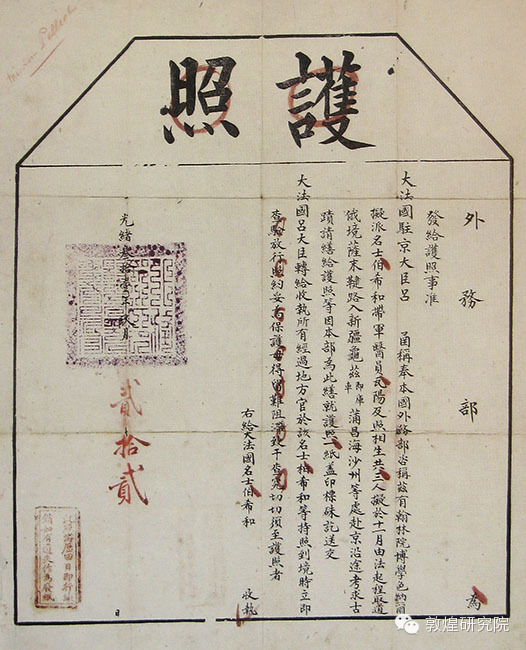 護照
外務部
為
發給護照事准
大法國駐京大臣呂 函稱奉本國外務部咨稱茲有翰林院博學色納爾
擬派名士伯希和帶軍醫員 陽及照相生共 人擬於十一月由法起程取道
俄境薩末鞬路入新疆龜茲即庫車蒲昌海沙州等處赴京沿途考求古
蹟請繕給護照等因本部為此繕就護照一紙蓋印標硃訖送交
大法國呂大臣轉給收執所有經過地方官於該名士伯希和等持照到境時立即
查驗放行照約妥為保護毋得留難阻滯致干查究切切須至護照者
右給大法國名士伯希和
收執
光緒叁拾壹年 月
貳拾貳
日
敦煌研究院